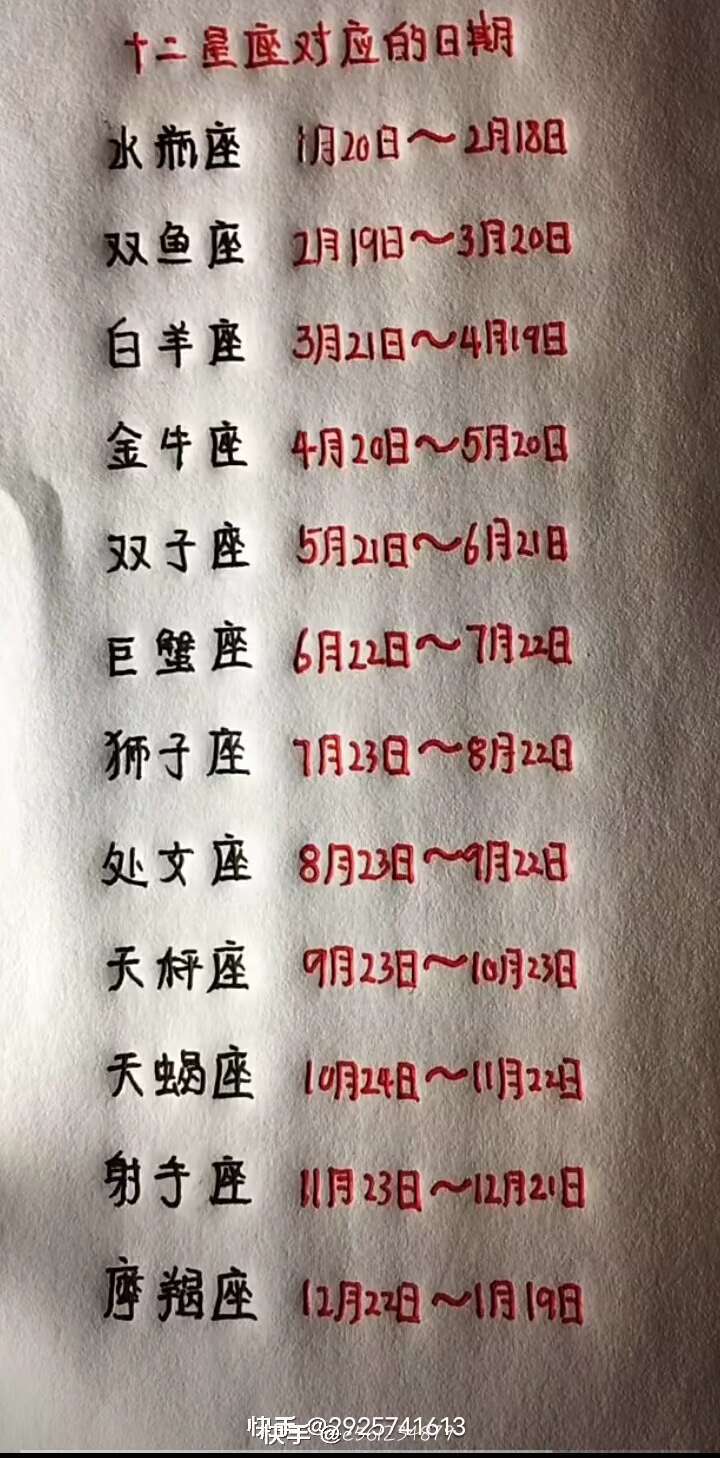 十二星座对应的日期
水瓶座 1月20日～2月18日
双鱼座 2月19日～3月20日
白羊座 3月21日～4月19日
金牛座 4月20日～5月20日
双子座 5月21日～6月21日
巨蟹座 6月22日～7月22日
狮子座 7月23日～8月22日
处文座 8月23日～9月22日
天秤座 9月23日～10月23日
天蝎座 10月24日～11月22日
射手座 11月23日～12月21日
摩羯座 12月22日～1月19日
快手 @2925741613
快手